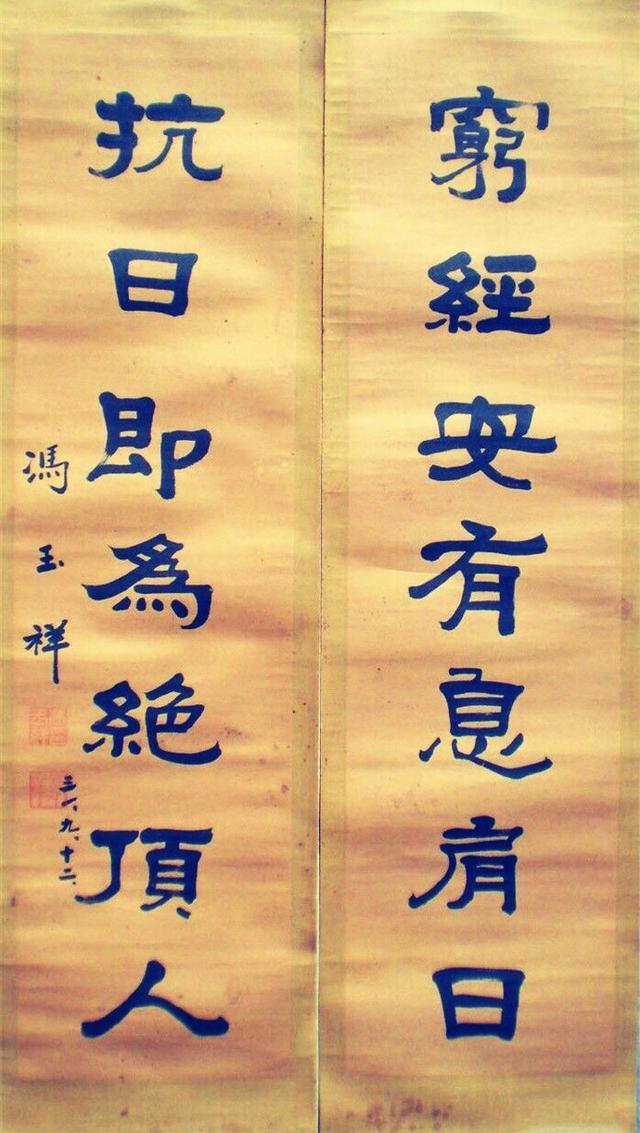 窮經安有息肩日
抗日即為絕頂人
馮玉祥
三一、九、十二、